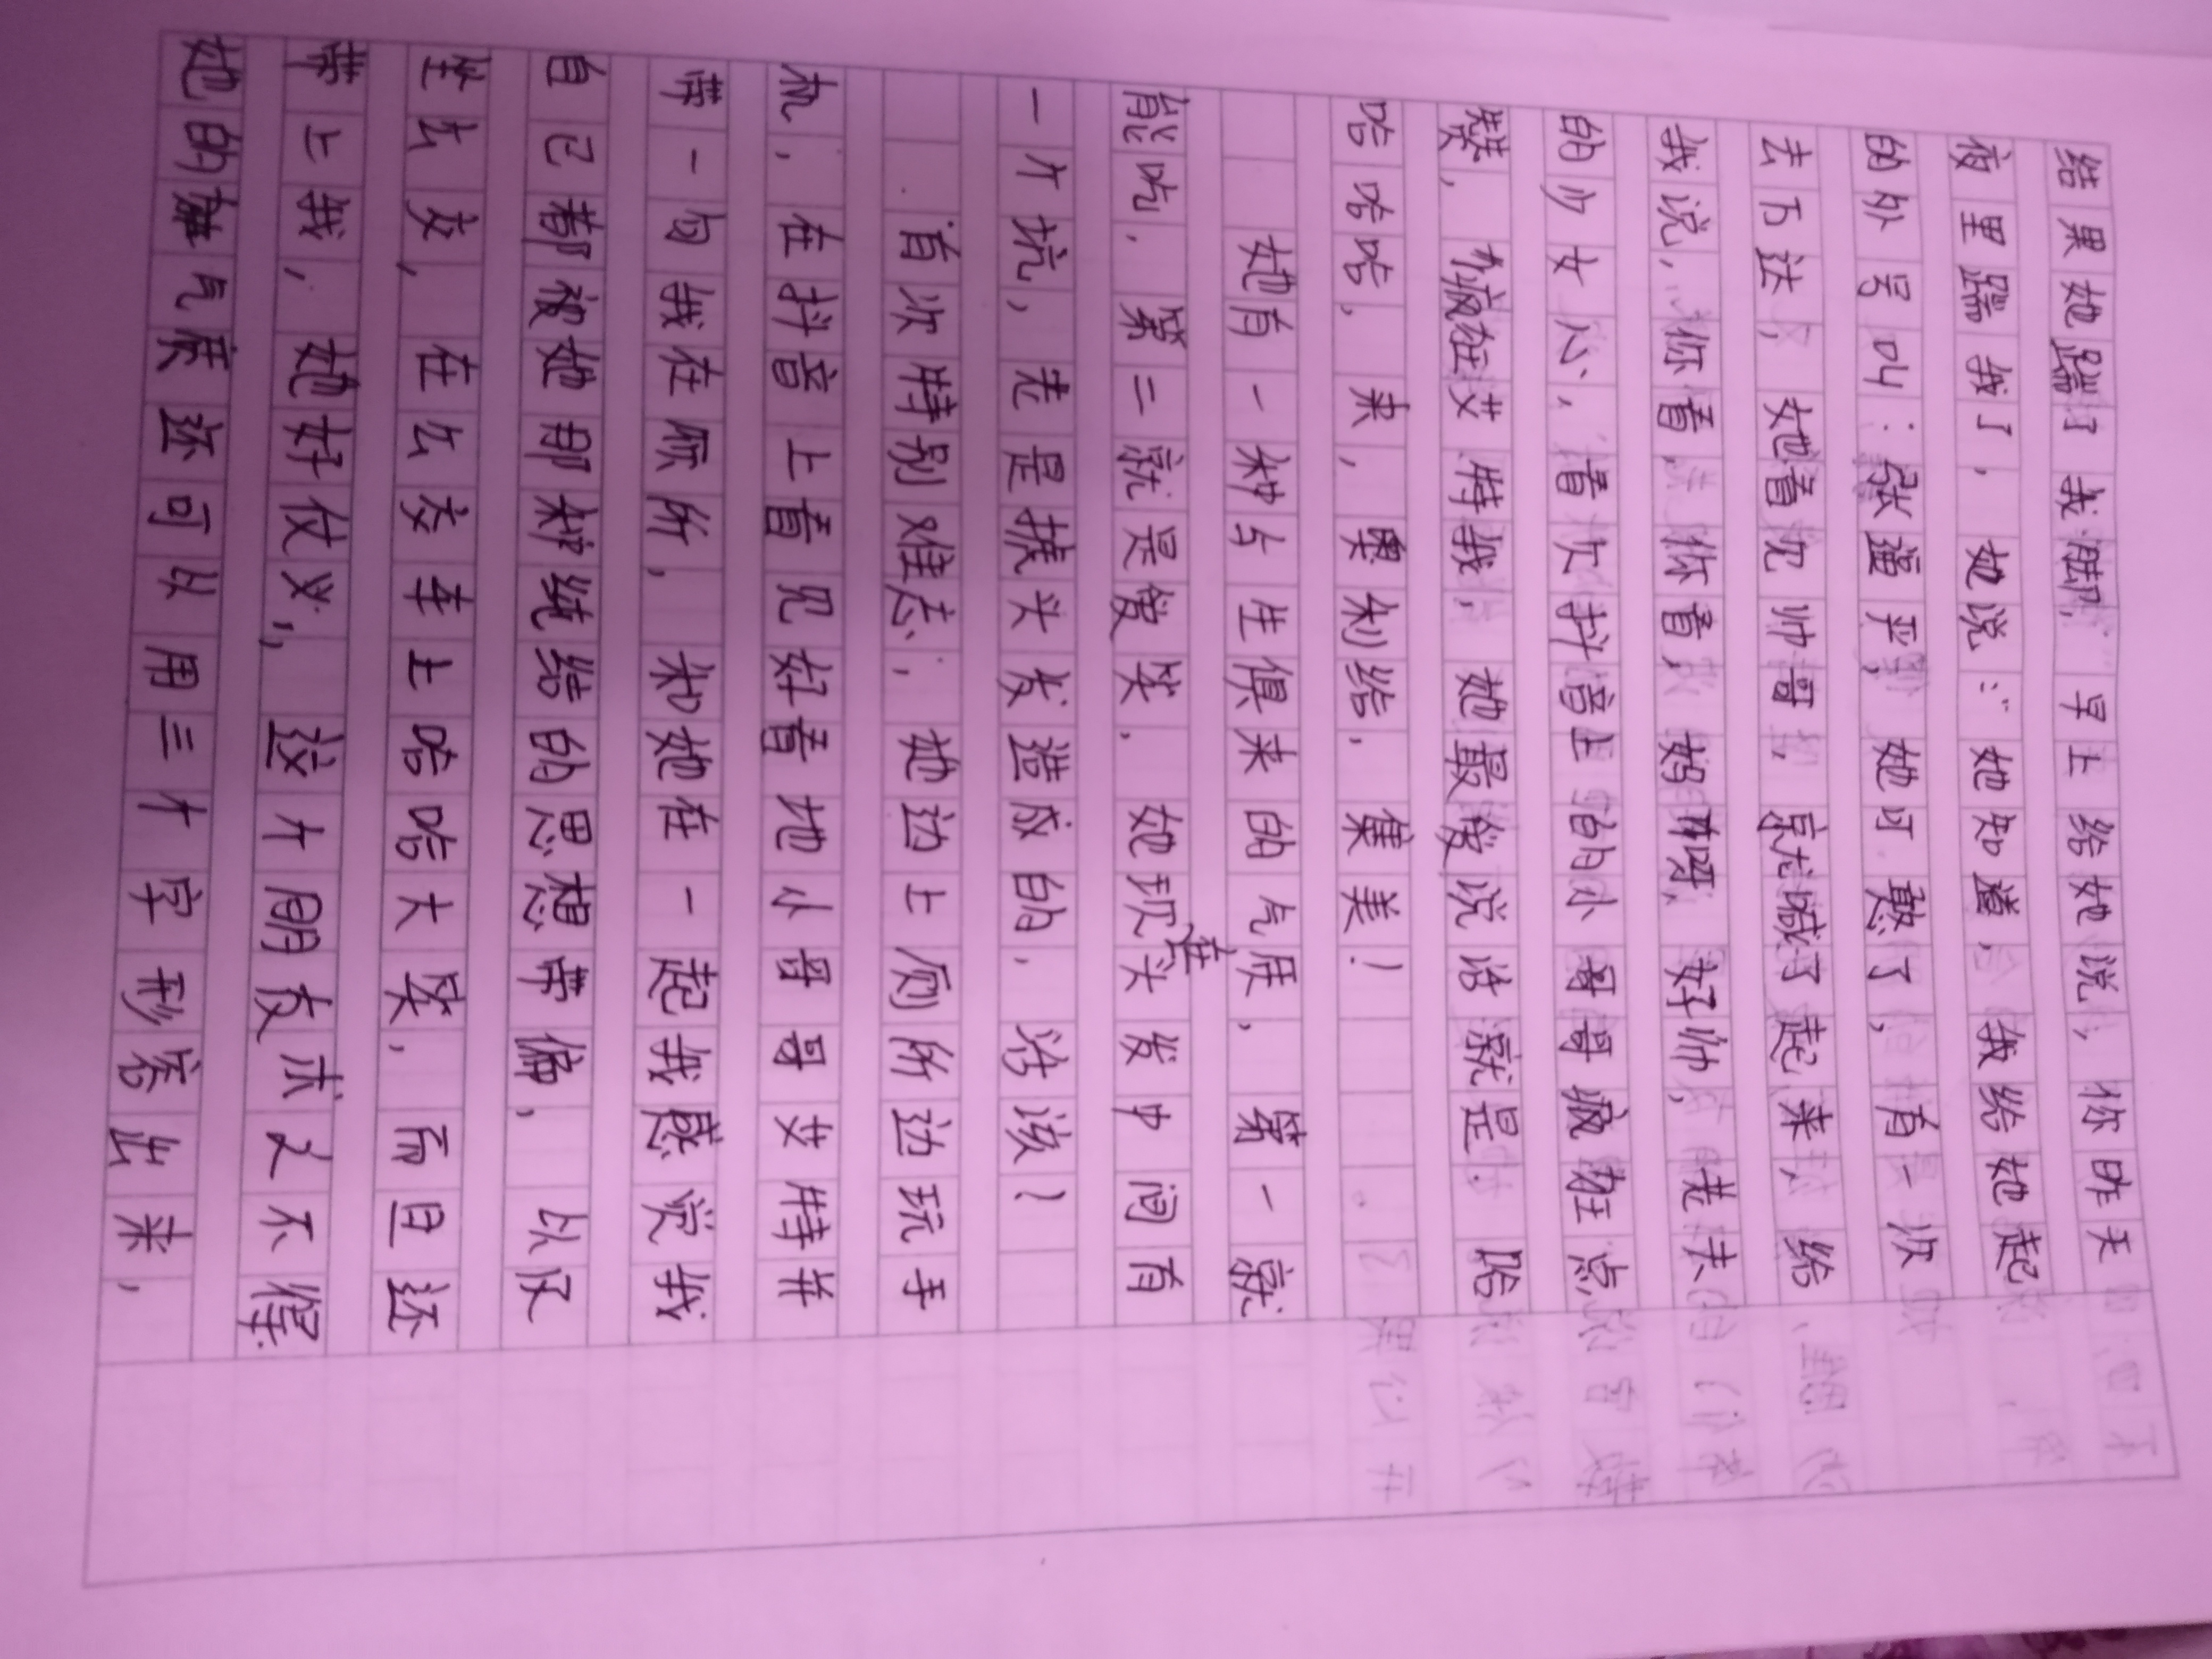 结果她踹了我一脚，早上给她说，你昨天
夜里踹我了，她说：“她知道，我给她起
的外号叫：张逼平，她可憨了，有一次
去万达，她看见帅哥，就喊了起来，给
我说，你看，你看，妈呀，好帅，老夫
的少女心，看次抖音上的小哥哥疯狂点
赞，疯狂艾特我，她最爱说话就是．哈
哈哈哈，来，奥利给，集美！
她有一种与生俱来的气质，第一就
能吃．第二就是爱笑．她现在头发中间有
一个坑，老是揪头发造成的，活该！
有次特别难忘，她边上厕所边玩手
机，在抖音上看见好看地小哥哥艾特并
带一句我在厕所，和她在一起我感觉我
自己都被她那种纯结的思想带偏，以仅
坐去友，在公交车上哈哈大笑，而且还
带上我，她好仗义，这个朋友求之不得
她的气质还可以用三个字形容出来，